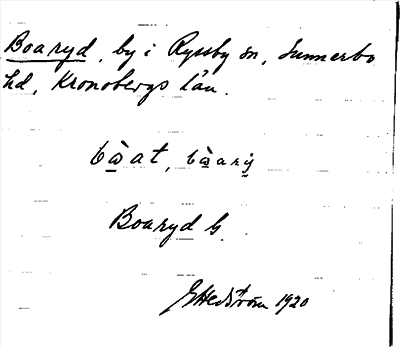 Boaryd, by i Ryssby sn, Sunnerbo
hd, Kronobergs län.
Boaryd G.
G Hedström 1920